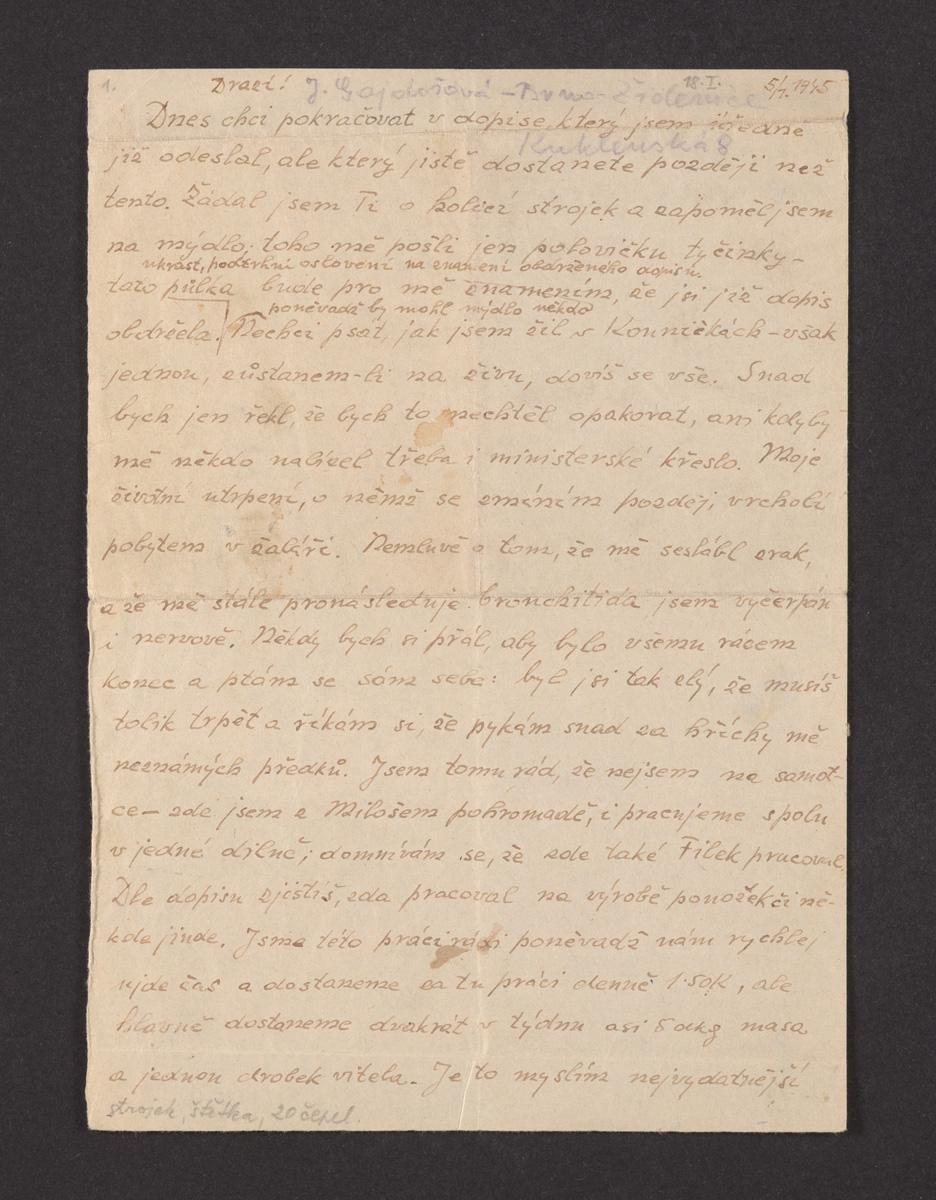 1. Drazí! J. Gajdošová - Brno - Židenice 18.I. 5/1. 1945
Dnes chci pokračovat v dopise, který jsem úředně
Kuklenská 8
již odeslal, ale který jistě dostanete později než
tento. Žádal jsem Ti o holicí strojek a zapoměl jsem
na mýdlo; toho mě pošli jen polovičku tyčinky -
ukrást, podtrhni oslovení na znamení obdrženého dopisu.
tato půlka bude pro mě znamením, že jsi již dopis
poněvadž by mohl mýdlo někdo
obdržela. Nechci psát, jak jsem žil v Kouničkách - však
jednou, zůstanem-li na živu, dovíš se vše. Snad
bych jen řekl, že bych to nechtěl opakovat, ani kdyby
mě někdo nabízel třeba i ministerské křeslo. Moje
životní utrpení, o němž se zmíním později, vrcholí
pobytem v žaláři. Nemluvě o tom, že mě seslábl zrak,
a že mě stále pronásleduje bronchitida jsem vyčerpán
i nervově. Někdy bych si přál, aby bylo všemu rázem
konec a ptám se sám sebe: byl jsi tak zlý, že musíš
tolik trpět a říkám si, že pykám snad za hříchy mě
neznámých předků. Jsem tomu rád, že nejsem na samot-
ce - zde jsem z Milošem pohromadě, i pracujeme spolu
v jedné dílně; domnívám se, že zde také Filek pracoval.
Dle dopisu zjistíš, zda pracoval na výrobě ponožek či ně-
kde jinde. Jsme této práci rádi poněvadž nám rychlej
ujde čas a dostaneme za tu práci denně 1.50K, ale
hlavně dostaneme dvakrát v týdnu asi 5 dkg masa
a jednou drobek vitela. Je to myslím nejvydatnější
strojek, štětka, 20 čepel.